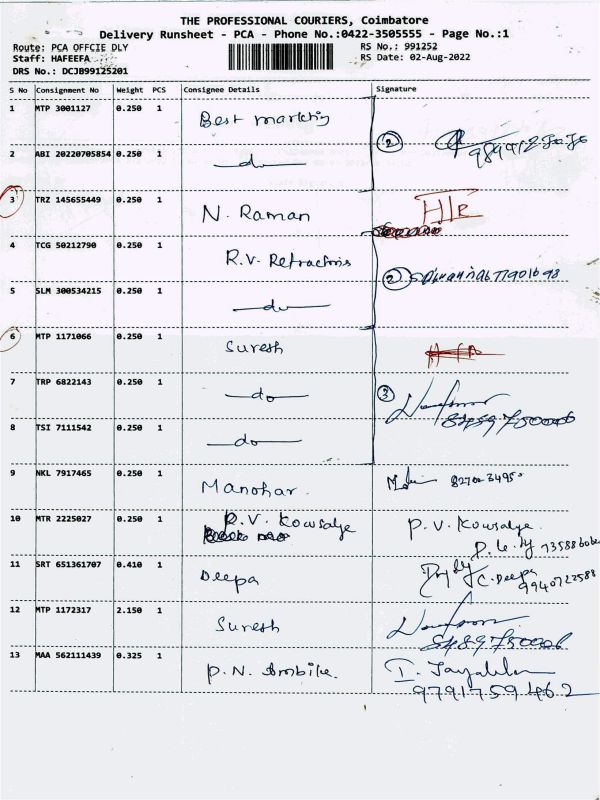 THE PROFESSIONAL COURIERS, Coimbatore
Delivery Runsheet - PCA - Phone No.:0422-3505555 - Page No.:1
Route: PCA OFFCIE DLY RS No.: 991252
Staff: HAFEEFA RS Date: 02-Aug-2022
DRS No.: DCJB99125201
S No Consignment No Weight PCS Consignee Details Signature
1 MTP 3001127 0.250 1 Best markting
2 ABI 20220705854 0.250 1 —do— 2
3 TRZ 145655449 0.250 1 N. Raman
4 TCG 50212790 0.250 1 R.V. Refractoris
5 SLM 300534215 0.250 1 —do— 2
6 MTP 1171066 0.250 1 Suresh
7 TRP 6822143 0.250 1 —do— 3
8 TSI 7111542 0.250 1 —do—
9 NKL 7917465 0.250 1 Manohar.
10 MTR 2225027 0.250 1 P.V. Kowsalye P.V. Kowsalye.
11 SRT 651361707 0.410 1 Deepa C. Deepa
9940722588
12 MTP 1172317 2.150 1 Suresh
13 MAA 562111439 0.325 1 P.N. Ambike.
9791759462